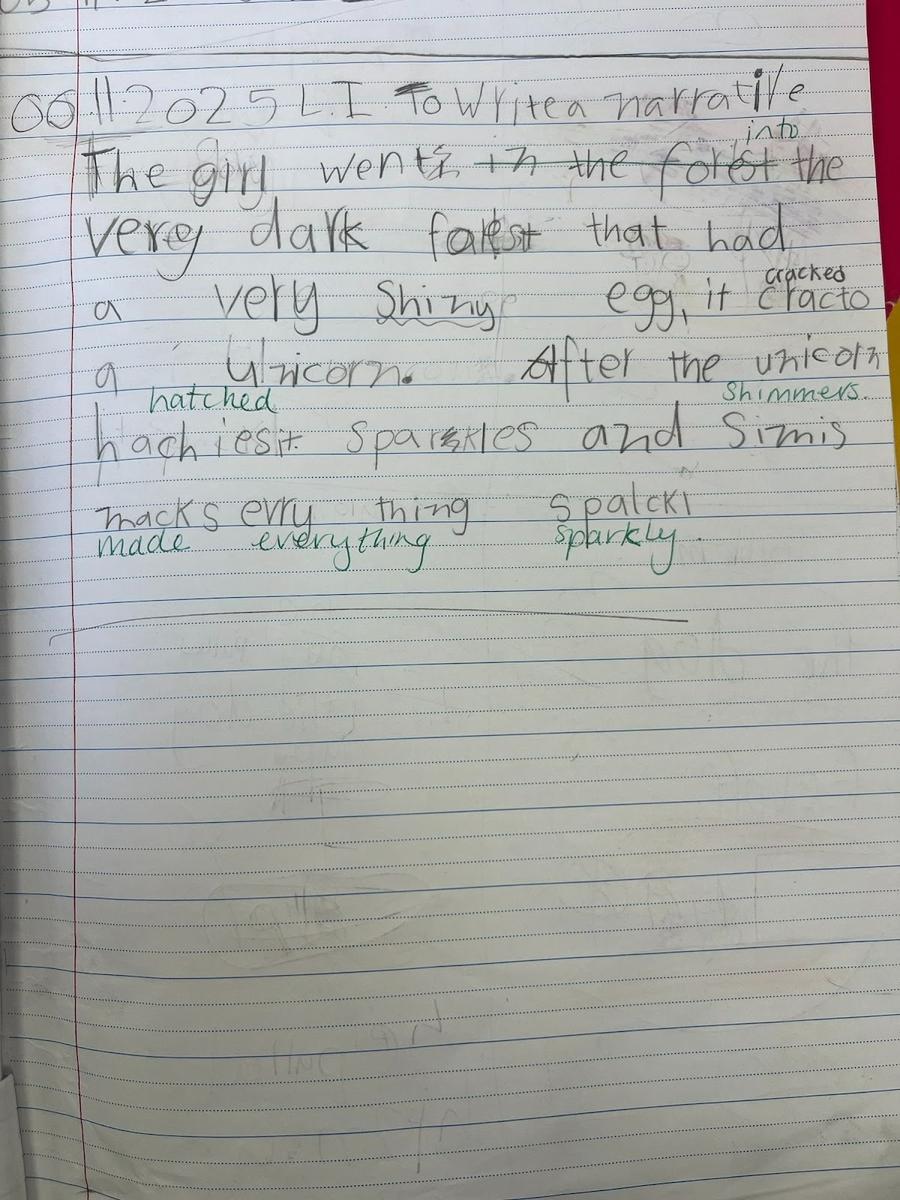 06.11.2025 L.I. To Write a narrative
into
The girl went in the forest the
very dark forest that had
cracked
a very Shiny egg, it cracto
a Unicorn. After the unicorn
hatched Shimmers.
hachiest Sparkles and Simis
macks evry thing Spalcki
made everything sparkly.